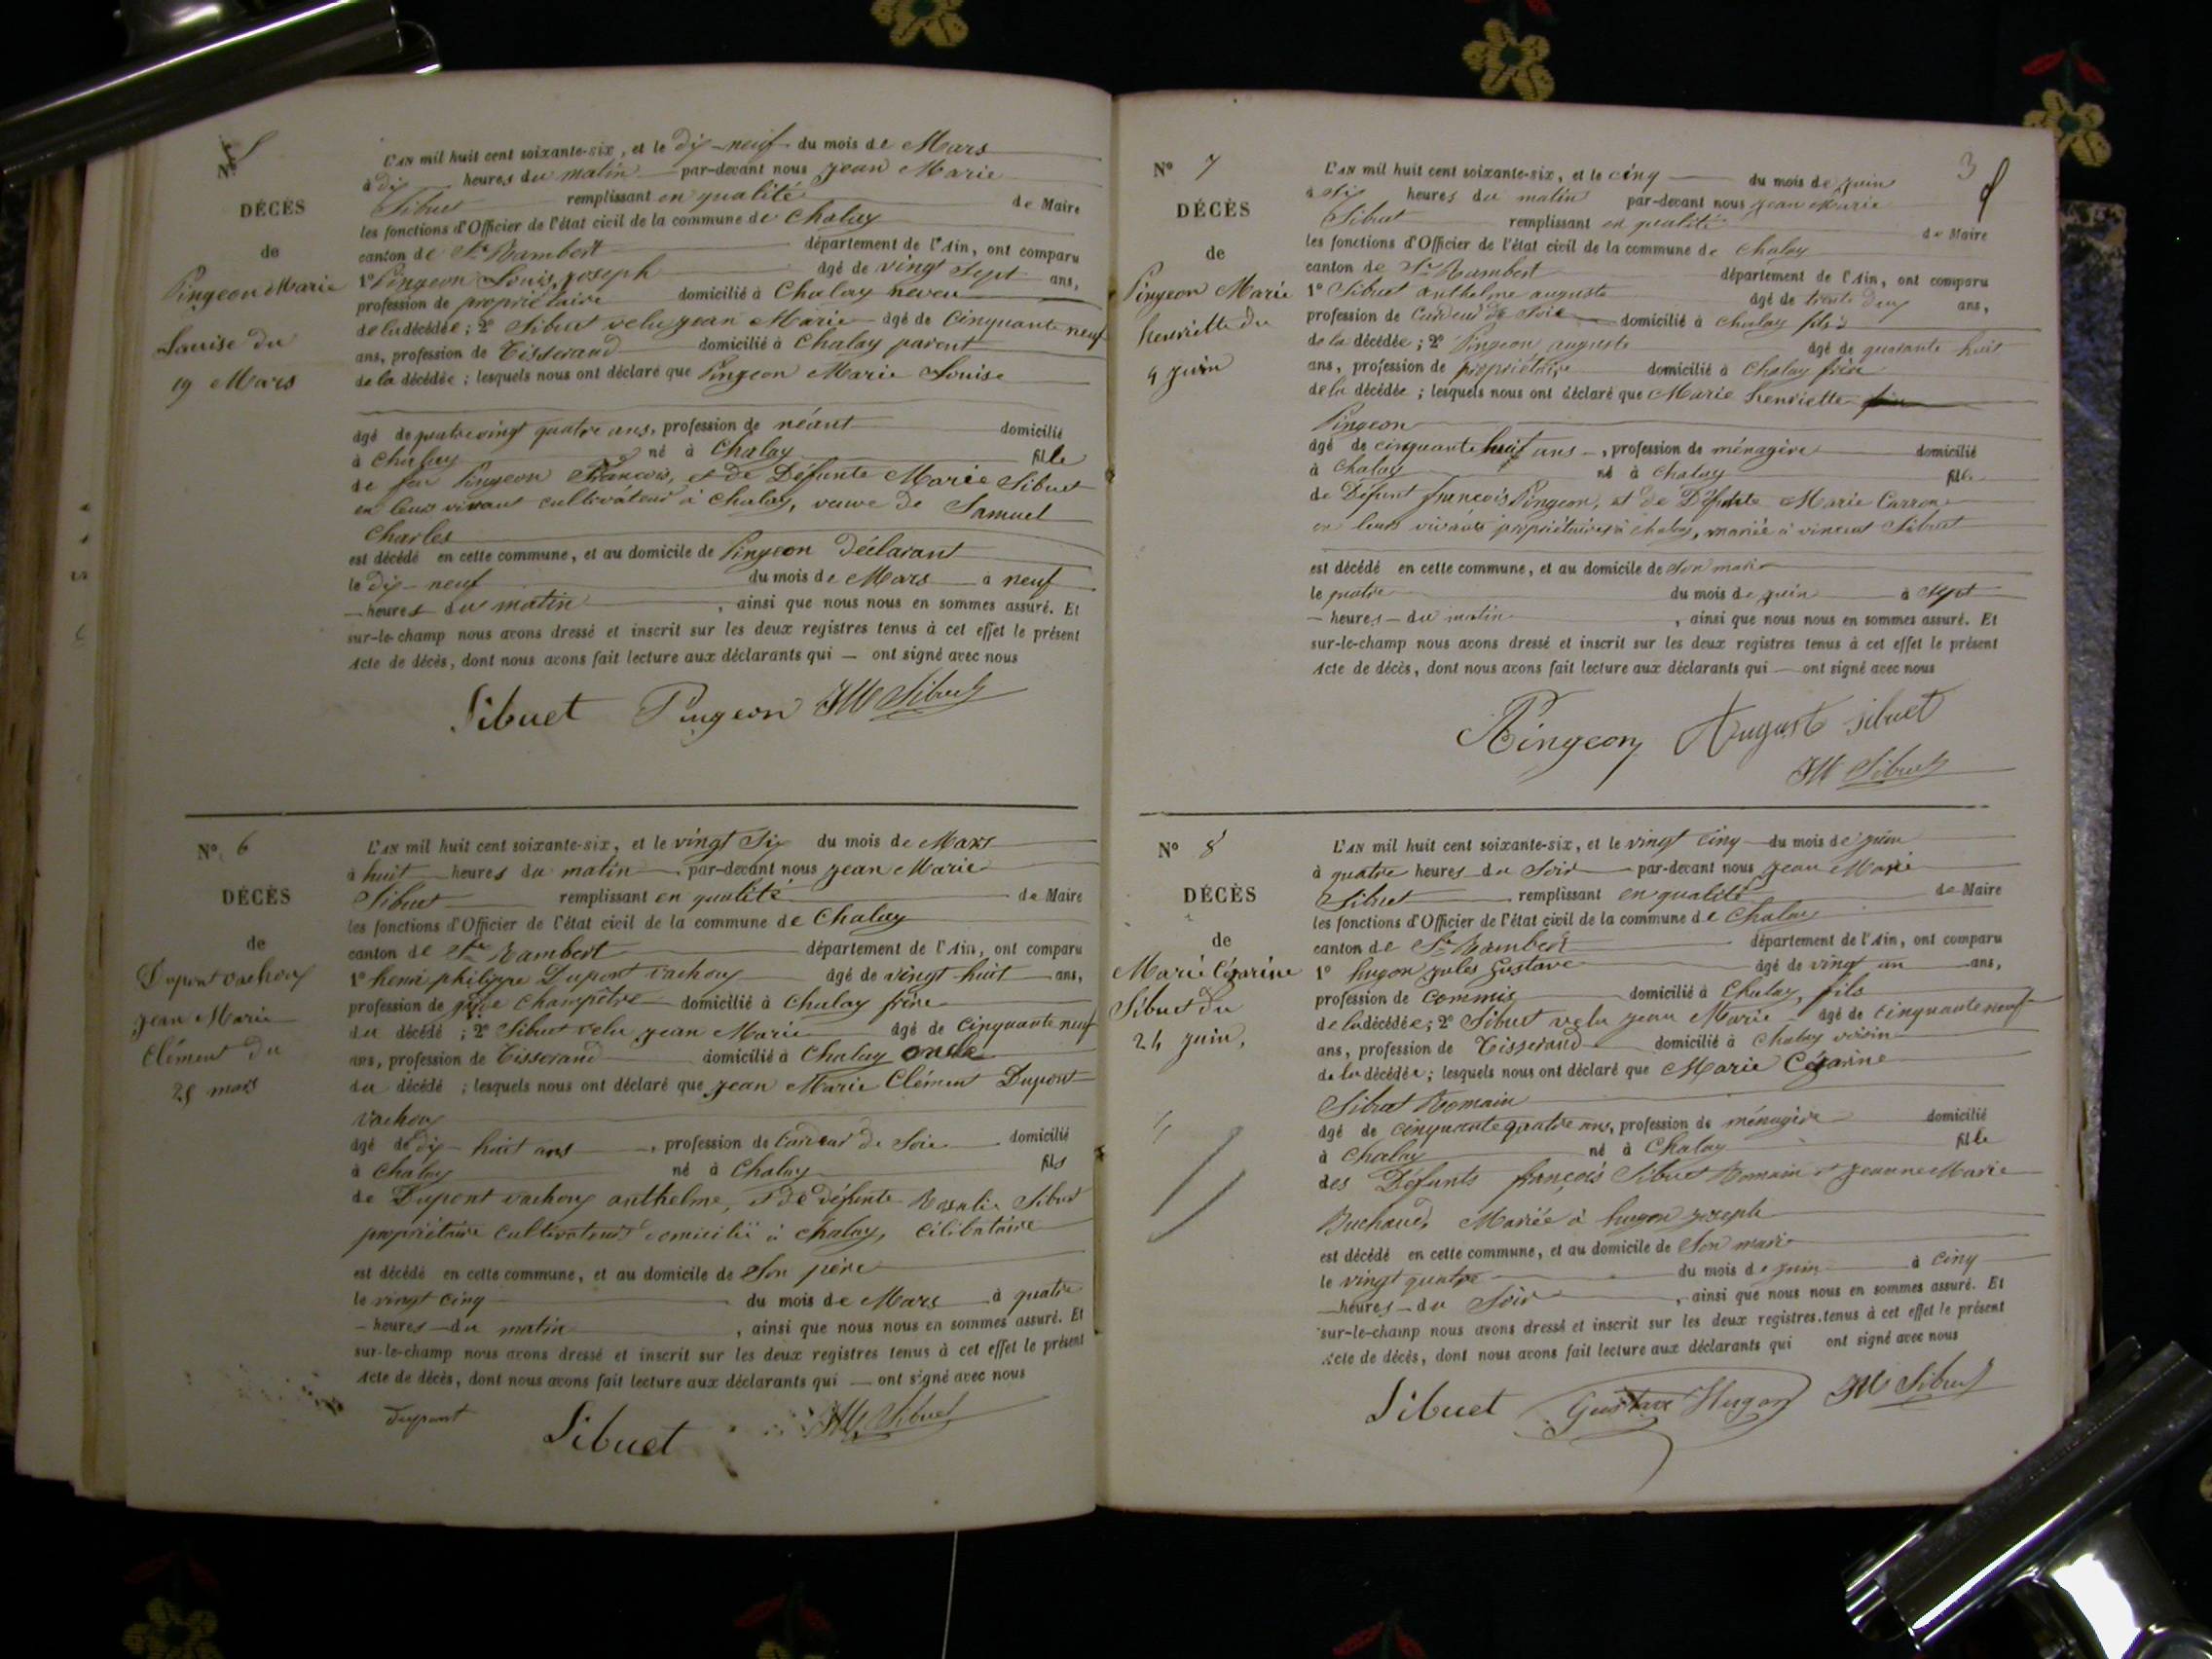 N° 5
DÉCÈS
de
Pingeon Marie
Louise du
19 Mars
L'AN mil huit cent soixante-six, et le dix-neuf du mois de Mars
à dix heures du matin par-devant nous jean Marie
Sibuet remplissant en qualité de Maire
les fonctions d'Officier de l'état civil de la commune de Chaley
canton de St Rambert département de l'Ain, ont comparu
1° Pingeon Louis, joseph âgé de vingt sept ans,
profession de propriétaire domicilié à Chaley neveu
de la décédée; 2° Sibuet velu jean Marie âgé de cinquante neuf
ans, profession de Tisserand domicilié à Chaley parent
de la décédée; lesquels nous ont déclaré que Pingeon Marie Louise
âgé de quatre vingt quatre ans, profession de néant domicilié
à Chaley né à Chaley fille
de feu Pingeon François, et de Défunte Marie Sibuet
en leur vivant cultivateurs à Chaley, veuve de Samuel
Charles
est décédé en cette commune, et au domicile de Pingeon Déclarant
le dix-neuf du mois de Mars à neuf
heures du matin, ainsi que nous nous en sommes assuré. Et
sur-le-champ nous avons dressé et inscrit sur les deux registres tenus à cet effet le présent
Acte de décès, dont nous avons fait lecture aux déclarants qui — ont signé avec nous
Sibuet Pingeon JM Sibuet
N° 6
DÉCÈS
de
Dupont vachoux
jean Marie
Clément du
25 mars
L'AN mil huit cent soixante-six, et le vingt six du mois de Mars
à huit heures du matin par-devant nous jean Marie
Sibuet remplissant en qualité de Maire
les fonctions d'Officier de l'état civil de la commune de Chaley
canton de St Rambert département de l'Ain, ont comparu
1° henri philippe Dupont vachoux âgé de vingt huit ans,
profession de garde Champêtre domicilié à Chaley frère
du décédé; 2° Sibuet velu jean Marie âgé de cinquante neuf
ans, profession de Tisserand domicilié à Chaley oncle
du décédé; lesquels nous ont déclaré que jean Marie Clément Dupont
vachoux
âgé de dix-huit ans, profession de Cardeur de Soie domicilié
à Chaley né à Chaley fils
de Dupont vachoux anthelme, et de défunte Rosalie Sibuet
propriétaire cultivateurs domicilié à Chaley, célibataire
est décédé en cette commune, et au domicile de Son père
le vingt cinq du mois de Mars à quatre
heures du matin, ainsi que nous nous en sommes assuré. Et
sur-le-champ nous avons dressé et inscrit sur les deux registres tenus à cet effet le présent
Acte de décès, dont nous avons fait lecture aux déclarants qui — ont signé avec nous
Dupont Sibuet JM Sibuet
3
N° 7
DÉCÈS
de
Pingeon Marie
henriette du
4 juin
L'AN mil huit cent soixante-six, et le cinq du mois de juin
à six heures du matin par-devant nous jean Marie
Sibuet remplissant en qualité de Maire
les fonctions d'Officier de l'état civil de la commune de Chaley
canton de St Rambert département de l'Ain, ont comparu
1° Sibuet anthelme auguste âgé de trente deux ans,
profession de Cardeur de Soie domicilié à Chaley fils
de la décédée; 2° Pingeon auguste âgé de quarante huit
ans, profession de propriétaire domicilié à Chaley frère
de la décédée; lesquels nous ont déclaré que Marie henriette
Pingeon
âgé de cinquante huit ans, profession de ménagère domicilié
à Chaley né à Chaley fille
de Défunt françois Pingeon, et de Défunte Marie Carron
en leurs vivants propriétaires à Chaley, mariée à vincent Sibuet
est décédé en cette commune, et au domicile de Son mari
le quatre du mois de juin à Sept
heures du matin, ainsi que nous nous en sommes assuré. Et
sur-le-champ nous avons dressé et inscrit sur les deux registres tenus à cet effet le présent
Acte de décès, dont nous avons fait lecture aux déclarants qui — ont signé avec nous
Pingeon August sibuet
JM Sibuet
N° 8
DÉCÈS
de
Marie Césarine
Sibuet du
24 juin,
L'AN mil huit cent soixante-six, et le vingt cinq du mois de juin
à quatre heures du Soir par-devant nous jean Marie
Sibuet remplissant en qualité de Maire
les fonctions d'Officier de l'état civil de la commune de Chaley
canton de St Rambert département de l'Ain, ont comparu
1° hugon jules Gustave âgé de vingt un ans,
profession de commis domicilié à Chaley, fils
de la décédée; 2° Sibuet velu jean Marie âgé de cinquante neuf
ans, profession de Tisserand domicilié à Chaley voisin
de la décédée; lesquels nous ont déclaré que Marie Césarine
Sibuet Romain
âgé de cinquante quatre ans, profession de ménagère domicilié
à Chaley né à Chaley fille
des Défunts françois Sibuet Romain et jeanne Marie
Buchaud, Mariée à hugon joseph
est décédé en cette commune, et au domicile de Son mari
le vingt quatre du mois de juin à cinq
heures du Soir, ainsi que nous nous en sommes assuré. Et
sur-le-champ nous avons dressé et inscrit sur les deux registres tenus à cet effet le présent
Acte de décès, dont nous avons fait lecture aux déclarants qui ont signé avec nous
Sibuet Gustave Hugon JM Sibuet